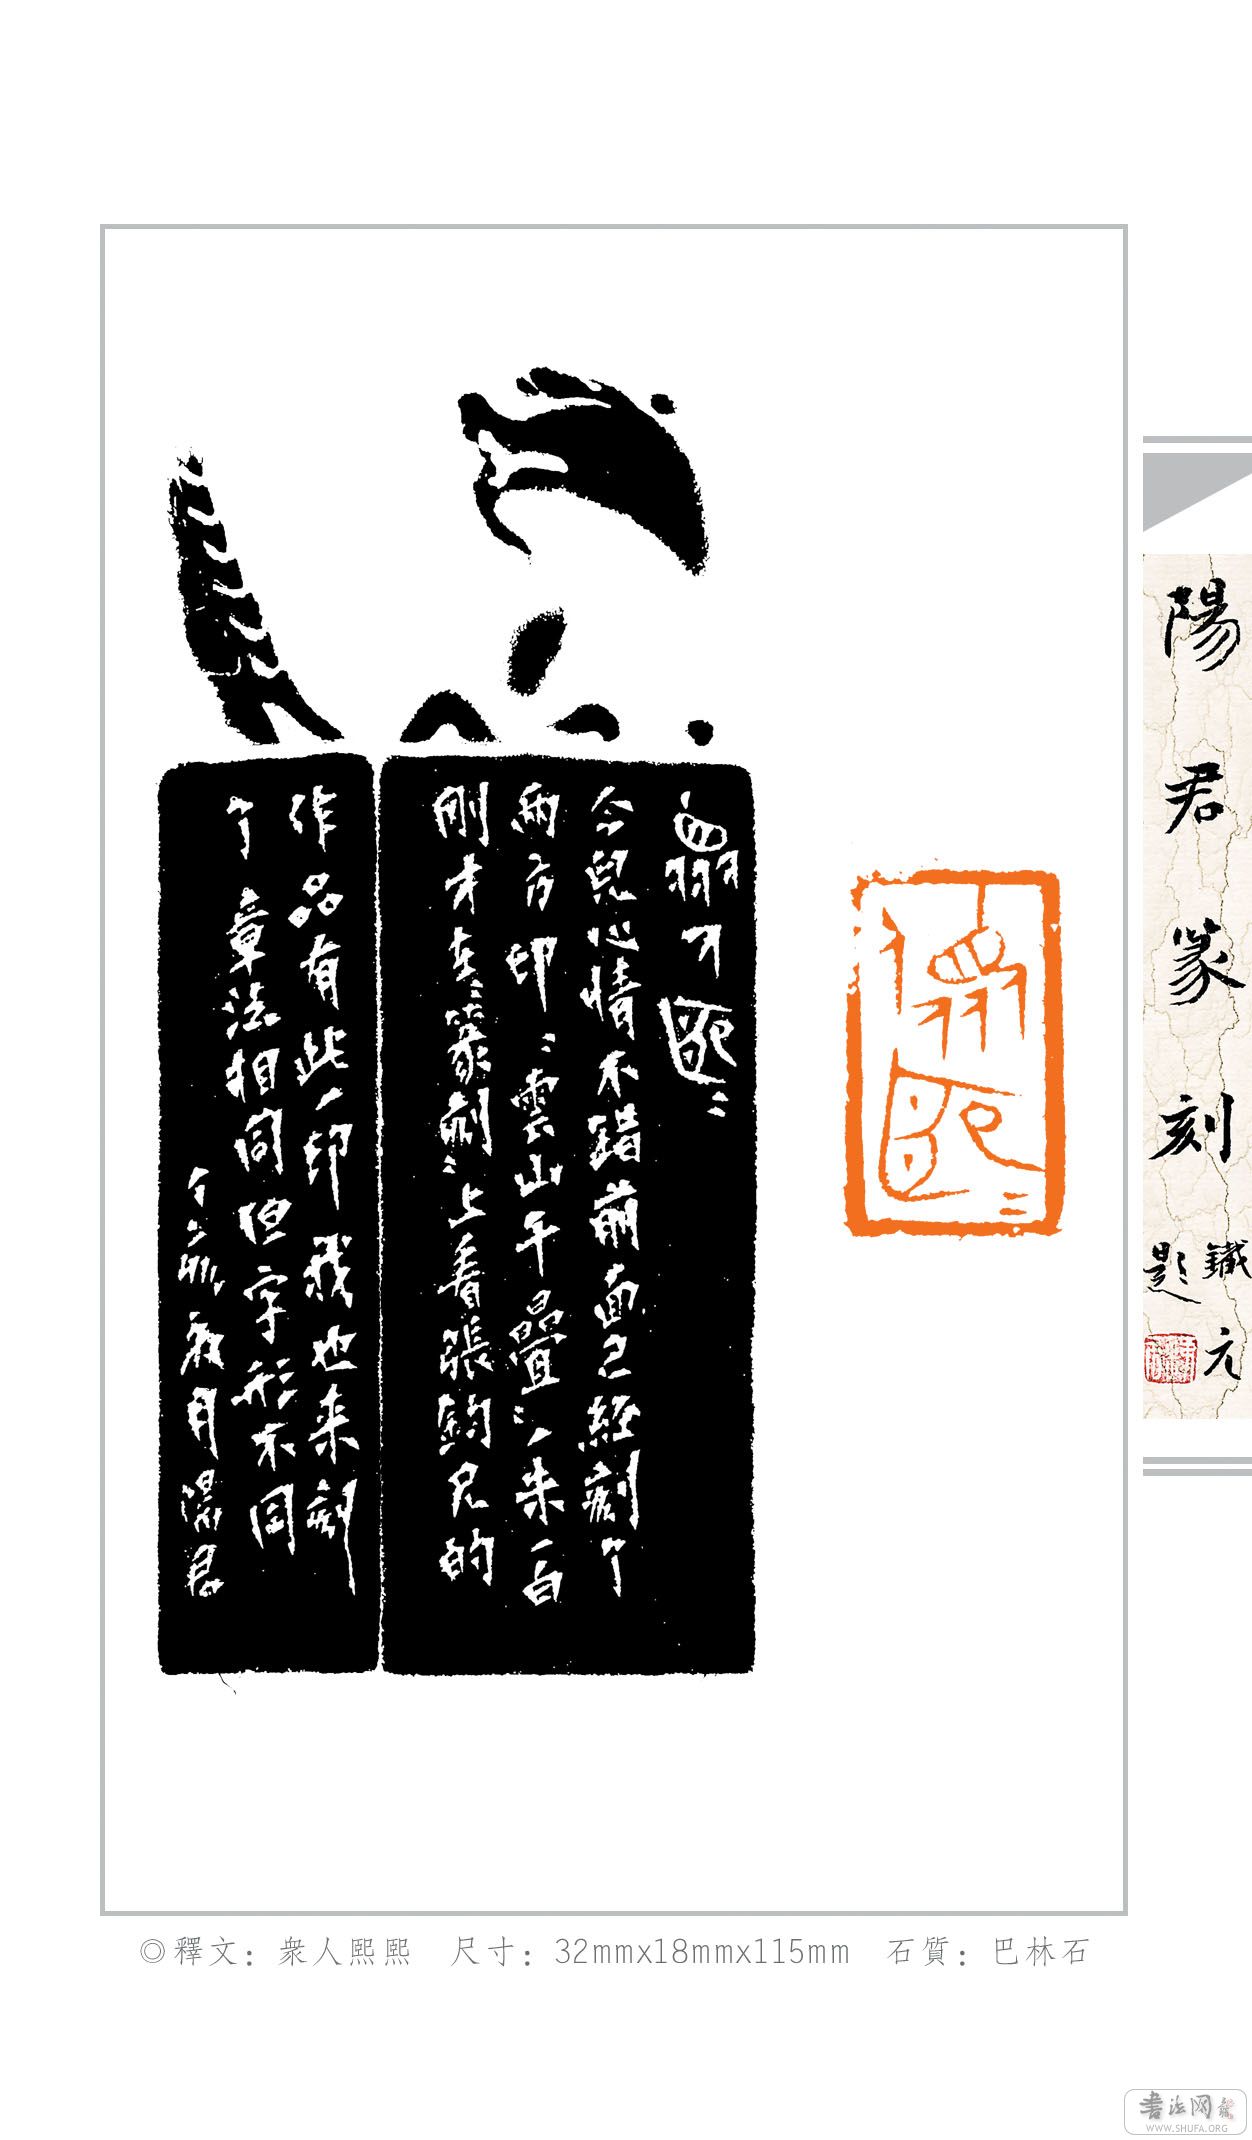 衆人熙〻
今兒心情不錯前面已經刻了
兩方印〻雲山千疊〻一朱一白
剛才在〻篆刻〻上看張鈞兄的
作品有此一印我也来刻
了章法相同但字形不同
月陽君
衆人熙〻
陽君篆刻
鐵元
題
◎釋文：衆人熙熙 尺寸：32mmx18mmx115mm 石質：巴林石
书法网
WWW.SHUFA.ORG